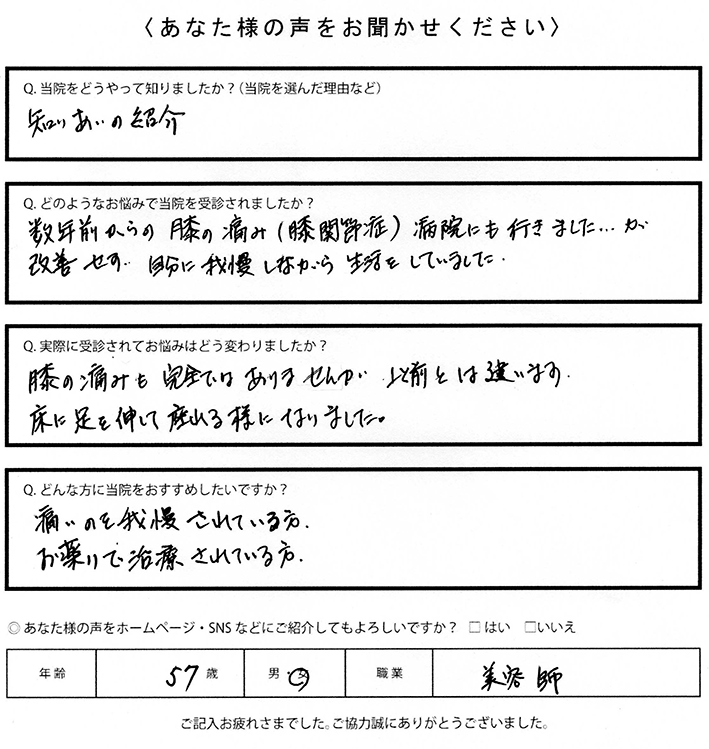 〈あなた様の声をお聞かせください〉
Q. 当院をどうやって知りましたか？（当院を選んだ理由など）
知りあいの紹介
Q. どのようなお悩みで当院を受診されましたか？
数年前からの膝の痛み（膝関節症）病院にも行きました…が
改善せず 自分に我慢しながら生活をしていました.
Q. 実際に受診されてお悩みはどう変わりましたか？
膝の痛みも完全ではありませんが 以前とは違います.
床に足を伸して座れる様になりました。
Q. どんな方に当院をおすすめしたいですか？
痛いのを我慢されている方.
お薬りで治療されている方.
◎あなた様の声をホームページ・SNSなどにご紹介してもよろしいですか？ □はい □いいえ
年齢 57歳 男・女 職業 美容師
ご記入お疲れさまでした。ご協力誠にありがとうございました。